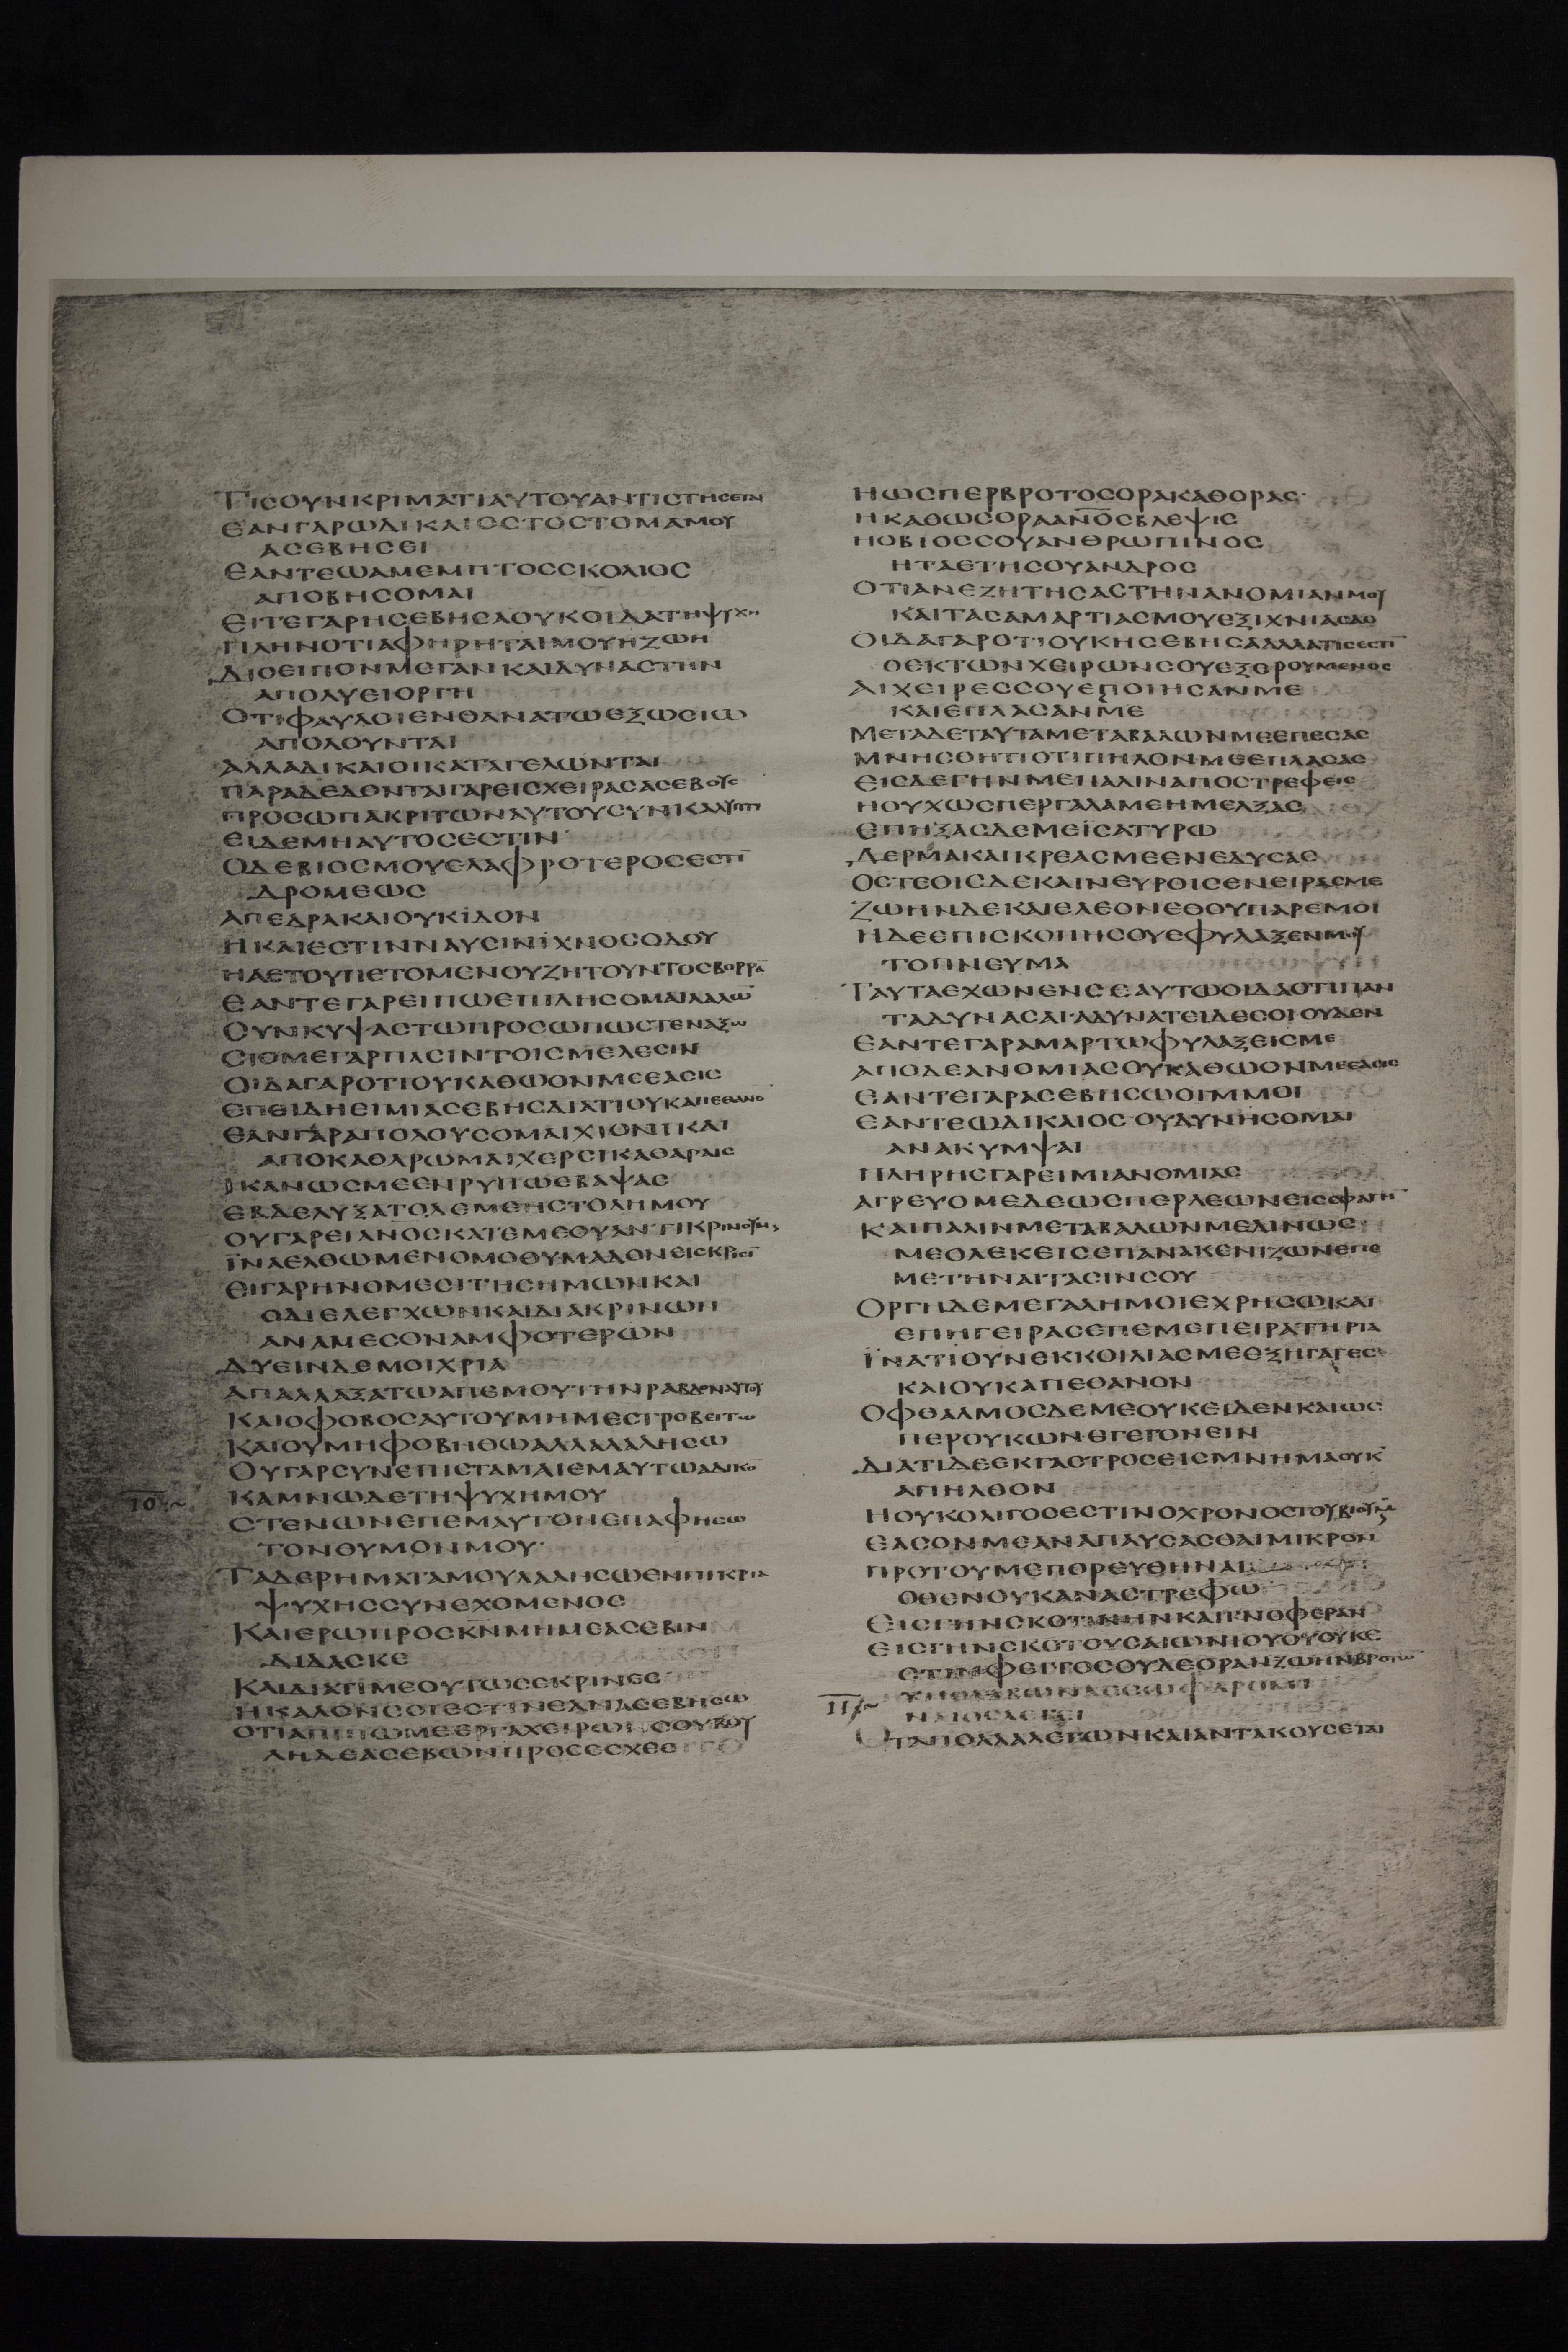 ΤΙСΟΥΝΚΡΙΜΑΤΙΑΥΤΟΥΑΝΤΙСΤΗСΕΤΑΙ
ΕΑΝΓΑΡΩΔΙΚΑΙΟСΤΟСΤΟΜΑΜΟΥ
ΑСΕΒΗСΕΙ
ΕΑΝΤΕΩΑΜΕΜΠΤΟССΚΟΛΙΟС
ΑΠΟΒΗСΟΜΑΙ
ΕΙΤΕΓΑΡΗСΕΒΗСΑΟΥΚΟΙΔΑΤΗΨΥΧΗ
ΠΛΗΝΟΤΙΑΦΗΡΗΤΑΙΜΟΥΗΖΩΗ
ΔΙΟΕΙΠΟΝΜΕΓΑΝΚΑΙΔΥΝΑСΤΗΝ
ΑΠΟΛΥΕΙΟΡΓΗ
ΟΤΙΦΑΥΛΟΙΕΝΘΑΝΑΤΩΕΞΩСΙΩ
ΑΠΟΛΟΥΝΤΑΙ
ΑΛΛΑΔΙΚΑΙΟΙΚΑΤΑΓΕΛΩΝΤΑΙ
ΠΑΡΑΔΕΔΟΝΤΑΙΓΑΡΕΙСΧΕΙΡΑСΑСΕΒΟΥС
ΠΡΟСΩΠΑΚΡΙΤΩΝΑΥΤΟΥСΥΝΚΑΛΥΠΤΙ
ΕΙΔΕΜΗΑΥΤΟСΕСΤΙΝ
ΟΔΕΒΙΟСΜΟΥΕΛΑΦΡΟΤΕΡΟСΕСΤΙ̅
ΔΡΟΜΕΩС
ΑΠΕΔΡΑΚΑΙΟΥΚΙΔΟΝ
ΗΚΑΙΕСΤΙΝΝΑΥСΙΝΙΧΝΟСΟΔΟΥ
ΗΑΕΤΟΥΠΕΤΟΜΕΝΟΥΖΗΤΟΥΝΤΟСΒΟΡΡΑ̅
ΕΑΝΤΕΓΑΡΕΙΠΩΕΠΙΛΗСΟΜΑΙΛΑΛΩ̅
СΥΝΚΥΨΑСΤΩΠΡΟСΩΠΩСΤΕΝΑΞΩ
СΙΟΜΕΓΑΡΠΑСΙΝΤΟΙСΜΕΛΕСΙΝ
ΟΙΔΑΓΑΡΟΤΙΟΥΚΑΘΩΟΝΜΕΕΑСΙС
ΕΠΕΙΔΗΕΙΜΙΑСΕΒΗСΔΙΑΤΙΟΥΚΑΠΕΘΑΝΟ
ΕΑΝΓΑΡΑΠΟΛΟΥСΟΜΑΙΧΙΟΝΙΚΑΙ
ΑΠΟΚΑΘΑΡΩΜΑΙΧΕΡСΙΚΑΘΑΡΑΙС
ΙΚΑΝΩСΜΕΕΝΡΥΠΩΕΒΑΨΑС
ΕΒΔΕΛΥΞΑΤΟΔΕΜΕΗСΤΟΛΗΜΟΥ
ΟΥΓΑΡΕΙΑΝΟСΚΑΤΕΜΕΘΥΑΝΤΙΚΡΙΝΟΥΜ
ΪΝΑΕΛΘΩΜΕΝΟΜΟΘΥΜΑΔΟΝΕΙСΚΡΙСΙ̅
ΕΙΓΑΡΗΝΟΜΕСΙΤΗСΗΜΩΝΚΑΙ
ΟΔΙΕΛΕΓΧΩΝΚΑΙΔΙΑΚΡΙΝΩΗ
ΑΝΑΜΕСΟΝΑΜΦΟΤΕΡΩΝ
ΔΥΕΙΝΔΕΜΟΙΧΡΙΑ
ΑΠΑΛΛΑΞΑΤΩΑΠΕΜΟΥΤΗΝΡΑΒΔΟΝΑΥΤΟΥ
ΚΑΙΟΦΟΒΟСΑΥΤΟΥΜΗΜΕСΤΡΟΒΕΙΤΩ
ΚΑΙΟΥΜΗΦΟΒΗΘΩΑΛΛΑΛΑΛΗСΩ
ΟΥΓΑΡСΥΝΕΠΙСΤΑΜΑΙΕΜΑΥΤΩΑΔΙΚΟ̅
10 ΚΑΜΝΩΔΕΤΗΨΥΧΗΜΟΥ
СΤΕΝΩΝΕΠΕΜΑΥΤΟΝΕΠΑΦΗСΩ
ΤΟΝΘΥΜΟΝΜΟΥ
ΤΑΔΕΡΗΜΑΤΑΜΟΥΛΑΛΗСΩΕΝΠΙΚΡΙΑ
ΨΥΧΗССΥΝΕΧΟΜΕΝΟС
ΚΑΙΕΡΩΠΡΟСΚ̅Ν̅ΜΗΜΕΑСΕΒΙΝ
ΔΙΔΑСΚΕ
ΚΑΙΔΙΑΤΙΜΕΟΥΤΩСΕΚΡΙΝΕС
ΗΚΑΛΟΝСΟΙΕСΤΙΝΕΑΝΑСΕΒΗСΩ
ΟΤΙΑΠΙΠΩΜΕΕΡΓΑΧΕΙΡΩΝСΟΥΒΟΥ
ΛΗΔΕΑСΕΒΩΝΠΡΟСΕСΧΕС
ΗΩСΠΕΡΒΡΟΤΟСΟΡΑΚΑΘΟΡΑС
ΗΚΑΘΩСΟΡΑΑ̅Ν̅Ο̅С̅ΒΛΕΨΙС
ΗΟΒΙΟССΟΥΑΝΘΡΩΠΙΝΟС
ΗΤΑΕΤΗСΟΥΑΝΔΡΟС
ΟΤΙΑΝΕΖΗΤΗСΑСΤΗΝΑΝΟΜΙΑΝΜΟΥ
ΚΑΙΤΑСΑΜΑΡΤΙΑСΜΟΥΕΞΙΧΝΙΑСΑС
ΟΙΔΑΓΑΡΟΤΙΟΥΚΗСΕΒΗСΑΑΛΛΑΤΙСΕСΤΙ̅
ΟΕΚΤΩΝΧΕΙΡΩΝСΟΥΕΞΕΡΟΥΜΕΝΟС
ΑΙΧΕΙΡΕССΟΥΕΠΟΙΗСΑΝΜΕ
ΚΑΙΕΠΛΑСΑΝΜΕ
ΜΕΤΑΔΕΤΑΥΤΑΜΕΤΑΒΑΛΩΝΜΕΕΠΕСΑС
ΜΝΗСΘΗΤΙΟΤΙΠΗΛΟΝΜΕΕΠΛΑСΑС
ΕΙСΔΕΓΗΝΜΕΠΑΛΙΝΑΠΟСΤΡΕΦΕΙС
ΗΟΥΧΩСΠΕΡΓΑΛΑΜΕΗΜΕΛΞΑС
ΕΠΗΞΑСΔΕΜΕΪСΑΤΥΡΩ
ΔΕΡΜΑΚΑΙΚΡΕΑСΜΕΕΝΕΔΥСΑС
ΟСΤΕΟΙСΔΕΚΑΙΝΕΥΡΟΙСΕΝΕΙΡΑСΜΕ
ΖΩΗΝΔΕΚΑΙΕΛΕΟΝΕΘΟΥΠΑΡΕΜΟΙ
ΗΔΕΕΠΙСΚΟΠΗСΟΥΕΦΥΛΑΞΕΝΜΟΥ
ΤΟΠΝΕΥΜΑ
ΤΑΥΤΑΕΧΩΝΕΝСΕΑΥΤΩΟΙΔΑΟΤΙΠΑΝ
ΤΑΔΥΝΑСΑΙΑΔΥΝΑΤΕΙΔΕСΟΙΟΥΔΕΝ
ΕΑΝΤΕΓΑΡΑΜΑΡΤΩΦΥΛΑΞΕΙСΜΕ
ΑΠΟΔΕΑΝΟΜΙΑСΟΥΚΑΘΩΟΝΜΕΕΑСΙС
ΕΑΝΤΕΓΑΡΑСΕΒΗСΩΟΙΜΜΟΙ
ΕΑΝΤΕΩΔΙΚΑΙΟСΟΥΔΥΝΗСΟΜΑΙ
ΑΝΑΚΥΜΨΑΙ
ΠΛΗΡΗСΓΑΡΕΙΜΙΑΝΟΜΙΑС
ΑΓΡΕΥΟΜΕΔΕΩСΠΕΡΛΕΩΝΕΙССΦΑΓΗ̅
ΚΑΙΠΑΛΙΝΜΕΤΑΒΑΛΩΝΜΕΔΙΝΩС
ΜΕΟΛΕΚΕΙСΕΠΑΝΑΚΕΝΙΖΩΝΕΠΕ
ΜΕΤΗΝΑΙΤΑСΙΝСΟΥ
ΟΡΓΗΔΕΜΕΓΑΛΗΜΟΙΕΧΡΗСΩΚΑΙ
ΕΠΗΓΕΙΡΑСΕΠΕΜΕΠΕΙΡΑΤΗΡΙΑ
ΪΝΑΤΙΟΥΝΕΚΚΟΙΛΙΑСΜΕΕΞΗΓΑΓΕС
ΚΑΙΟΥΚΑΠΕΘΑΝΟΝ
ΟΦΘΑΛΜΟСΔΕΜΕΟΥΚΕΙΔΕΝΚΑΙΩС
ΠΕΡΟΥΚΩΝΕΓΕΓΟΝΕΙΝ
ΔΙΑΤΙΔΕΕΚΓΑСΤΡΟСΕΙСΜΝΗΜΑΟΥΚ
ΑΠΗΛΘΟΝ
ΗΟΥΚΟΛΙΓΟСΕСΤΙΝΟΧΡΟΝΟСΤΟΥΒΙΟΥΜΟΥ
ΕΑСΟΝΜΕΑΝΑΠΑΥСΑСΘΑΙΜΙΚΡΟΝ
ΠΡΟΤΟΥΜΕΠΟΡΕΥΘΗΝΑΙ
ΟΘΕΝΟΥΚΑΝΑСΤΡΕΦΩ
ΕΙСΓΗΝСΚΟΤΙΝΗΝΚΑΙΓΝΟΦΕΡΑΝ
ΕΙСΓΗΝСΚΟΤΟΥСΑΙΩΝΙΟΥΟΥΟΥΚΕ
СΤΙΝΦΕΓΓΟСΟΥΔΕΟΡΑΝΖΩΗΝΒΡΟΤΩ̅
11
ΟΤΑΠΟΛΛΑΛΕΓΩΝΚΑΙΑΝΤΑΚΟΥСΕΤΑΙ